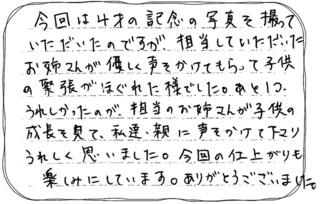 今回は4才の記念の写真を撮って
いただいたのですが、担当していただいた
お姉さんが優しく声をかけてもらって子供
の緊張がほぐれた様でした。あと1つ、
うれしかったのが、担当のお姉さんが子供の
成長を見て、私達・親に声をかけて下さり
うれしく思いました。今回の仕上がりも
楽しみにしています。ありがとうございました。